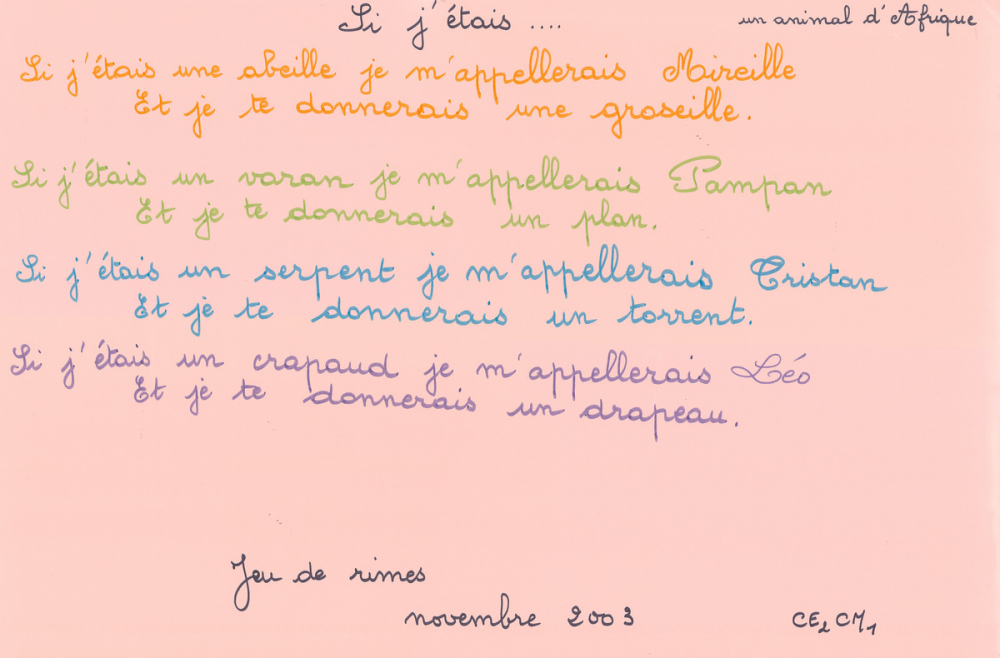 Si j'étais .... un animal d'Afrique
Si j'étais une abeille je m'appellerais Mireille
Et je te donnerais une groseille.
Si j'étais un varan je m'appellerais Pampan
Et je te donnerais un plan.
Si j'étais un serpent je m'appellerais Tristan
Et je te donnerais un torrent.
Si j'étais un crapaud je m'appellerais Léo
Et je te donnerais un drapeau.
Jeu de rimes
novembre 2003 CE2 CM1